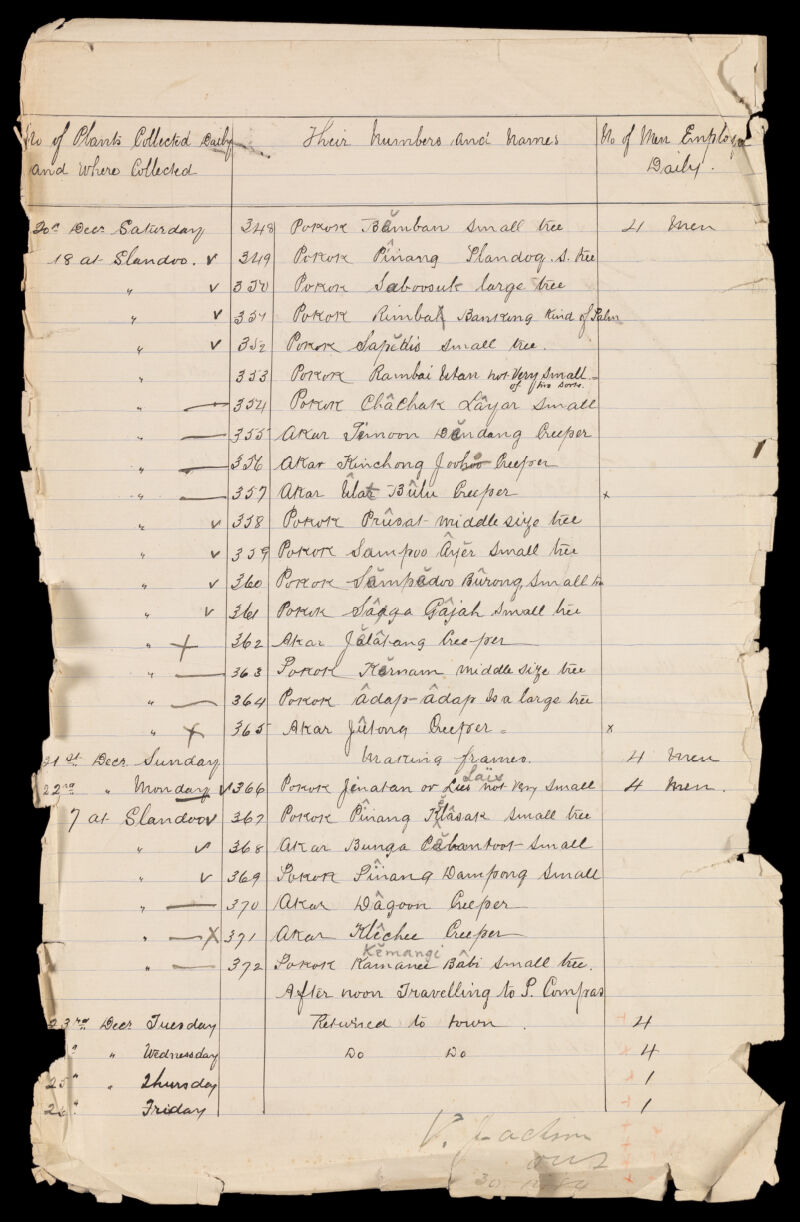 No of Plants Collected Daily Their Numbers and Names No of Men Employed
and where Collected Daily.
20th Decr Saturday 348 Pokok Bĕmban small tree 4 Men
18 at Slandoo. v 349 Pokok Pînang Slandog. S. tree
" v 350 Pokok Saboosuk large tree
" v 351 Pokok Rimbak Banking Kind of Palm
" v 352 Pokok Sapĕtis small tree.
" 353 Pokok Rambai Utan not Very small
of two sorts.
" — 354 Pokok Châchak Lâyar small
" — 355 Akar Timoon Dĕndang Creeper
" — 356 Akar Kinchong Creeper
" — 357 Akar Ûlat Bûlu Creeper x
" v 358 Pokok Prûsat middle size tree
" v 359 Pokok Sampoo Âyĕr small tree
" v 360 Pokok Sĕmpĕdoo Bûrong, small tree
" v 361 Pokok Sâga Gâjah small tree
" x 362 Akar Jĕlâtang Creeper
" — 363 Pokok Kĕrnam middle size tree
" — 364 Pokok âdap-âdap Is a large tree
" x 365 Akar Jûtong Creeper x
21st Decr Sunday making frames. 4 Men
Läis
22nd " Monday v 366 Pokok Jenatan or Lies not Very small 4 Men.
7 at Slandoo v 367 Pokok Pînang Kĕlâsak small tree
" v 368 Akar Bunga Pĕbantoot small
" v 369 Pokok Pînang Dampong small
" — 370 Akar Dâgoon Creeper
" — x 371 Akar Klêchee Creeper
Kĕmangi
" — 372 Pokok Kamanee Bâbi small tree.
After noon Travelling to P. Compas
23rd Decr Tuesday Returned to town. 4
" Wednesday Do Do 4
25 " " Thursday 1
26 " Friday 1
V.